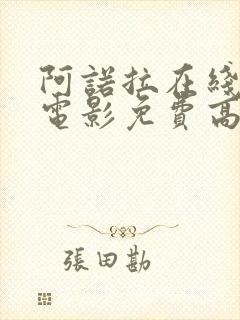 阿諾拉在綫
電影免費高
張田勘